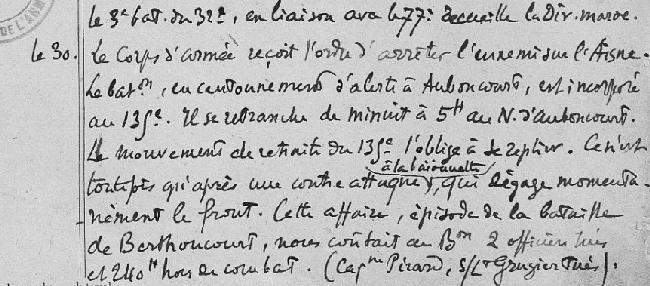 le 3e bat. du 32e, en liaison avec le 77e recueille la Div. maroc.
le 30. Le Corps d'armée reçoit l'ordre d'arrêter l'ennemi sur l'Aisne.
Le baton, en cantonnement d'alerte à Auboncourt, est incorporé
au 135e. Il se retranche de minuit à 5h au N. d'Auboncourt.
Le mouvement de retraite du 135e l'oblige à se replier. Ce n'est
toutefois qu'après une contre attaque à la baïonnette, qui dégage momenta-
nément le front. Cette affaire, épisode de la bataille
de Berthoncourt, nous coûtait au Bon 2 officiers tués
et 240h hors de combat. (Capne Picard, S/Lt Gruzier tués).